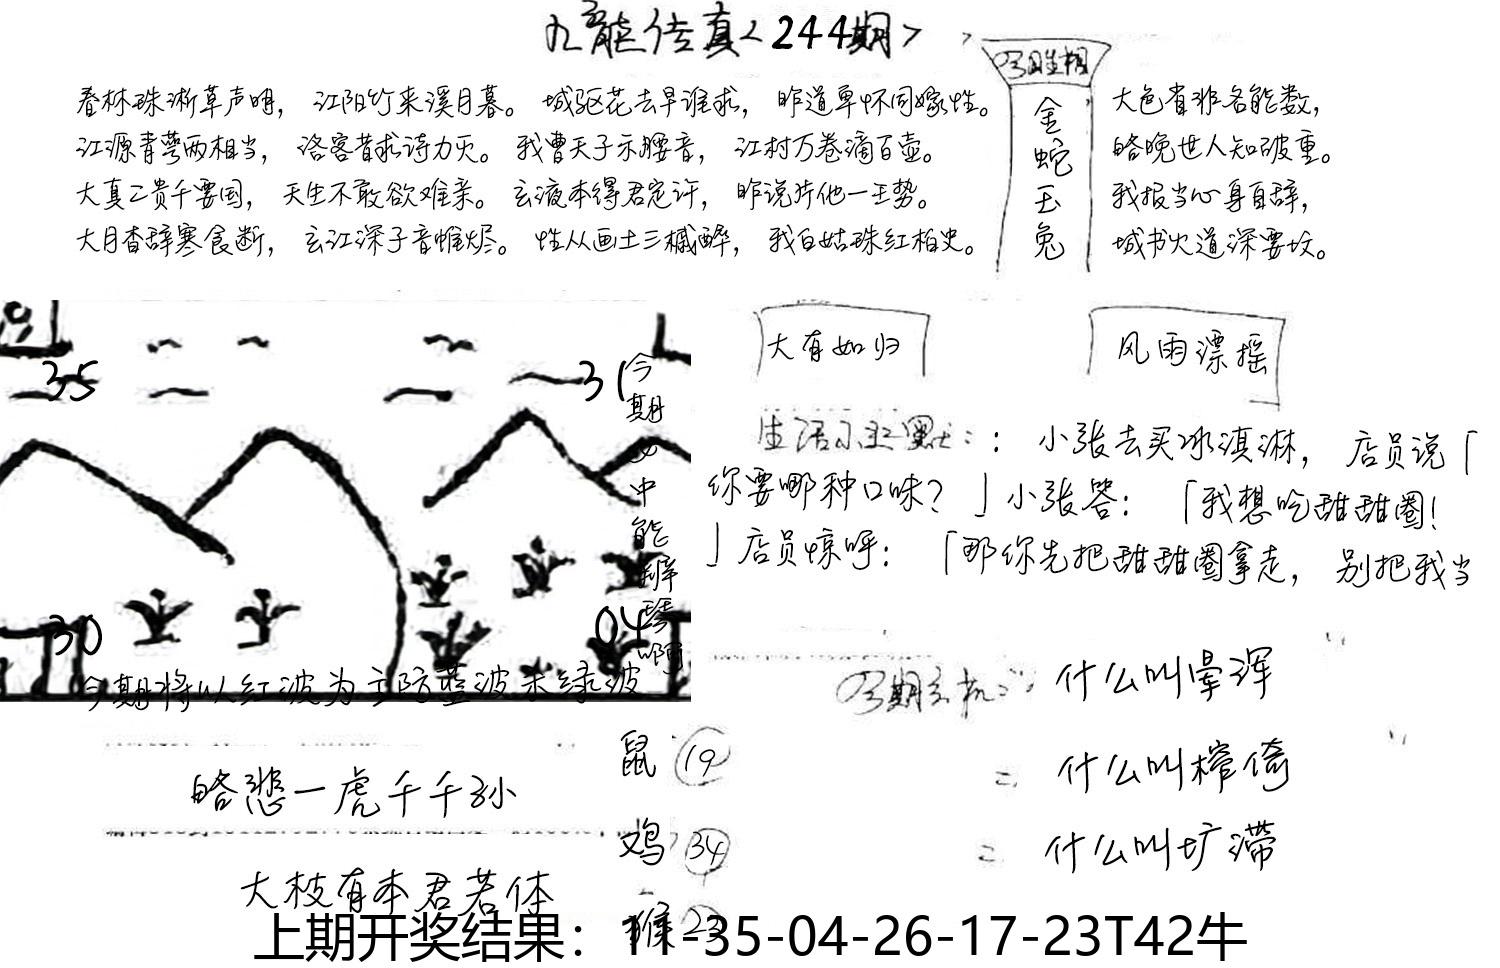 九龙传真<244期>
春林珠淅草声明，江阳竹来溪月暮。城驱花去早谁求，昨道单怀同嫁性。
江源青萼两相当，洛客昔求诗力灭。我曹天子示腰音，江村万卷滴百壶。
大真二贵千要国，天生不敢欲难亲。玄液本得君定许，昨说片他一王势。
大月杳辞寒食断，玄江深子音惟烬。性从画土三槭醉，我白姑珠红柏史。
金
蛇
玉
兔
大色有非名能数，
皓晚世人知破重。
我报当心身自辞，
城书火道深要坟。
大有如归
风雨漂摇
生活小幽默：：小张去买冰淇淋，店员说「
你要哪种口味？」小张答：「我想吃甜甜圈！
」店员惊呼：「那你先把甜甜圈拿走，别把我当
35
31
30
04
今期
中能辨琴啊
今期将以红波为主防蓝波杀绿波
什么叫晕浑
什么叫樘倚
什么叫圹滞
皓悲一虎千千孙
大枝有本君若体
鼠 19
鸡 34
猴 23
上期开奖结果：11-35-04-26-17-23T42牛